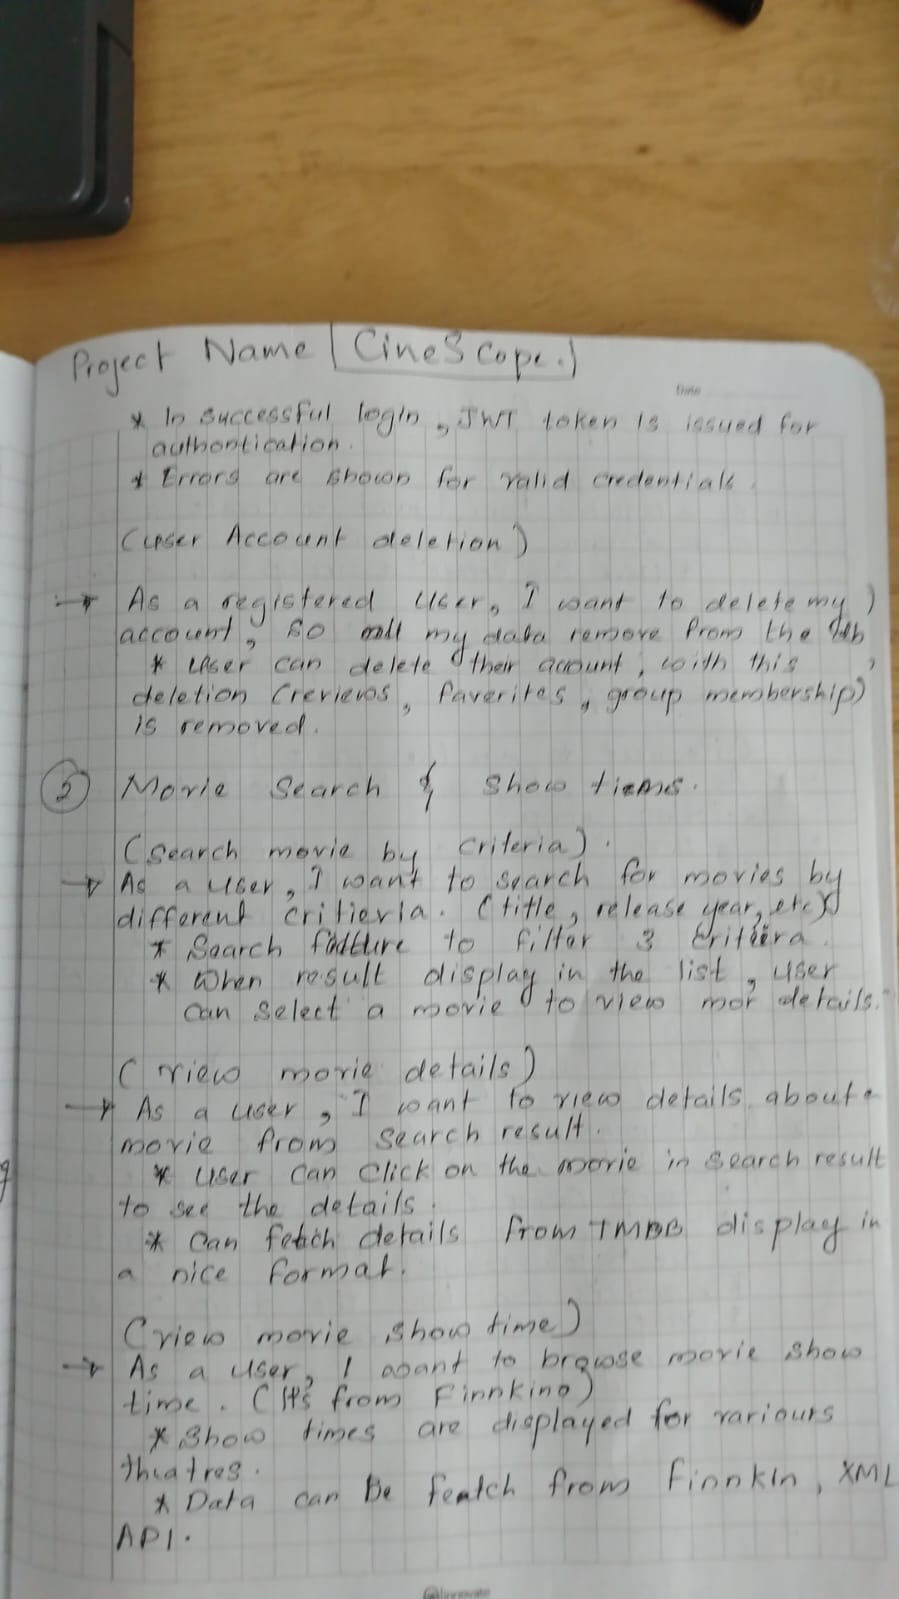 Project Name | CineScope.
Date
* In successful login, JWT token is issued for
authontication.
* Errors are shown for valid credentials.
(user Account deletion)
→ As a registered user, I want to delete my
account, so all my data remove from the
* user can delete their account, with this
deletion (reviews, faverites, group membership)
is removed.
Movie Search & Show tiems.
(Search movie by criteria).
→ As a user, I want to search for movies by
different critieria. (title, release year, etc)
* Search to filter 3
* When result display in the list, user
can select a movie to view mor details.
(view movie details)
→ As a user, I want to view details about a
movie from search result.
* user can click on the movie in search result
to see the details.
* Can fetch details from TMDB display in
a nice format.
(view movie show time)
→ As a user, I want to browse movie show
time. (It's from Finnkino)
* Show times are displayed for variours
theatres.
* Data can Be featch from FinnkIn, XML
API.
innovate